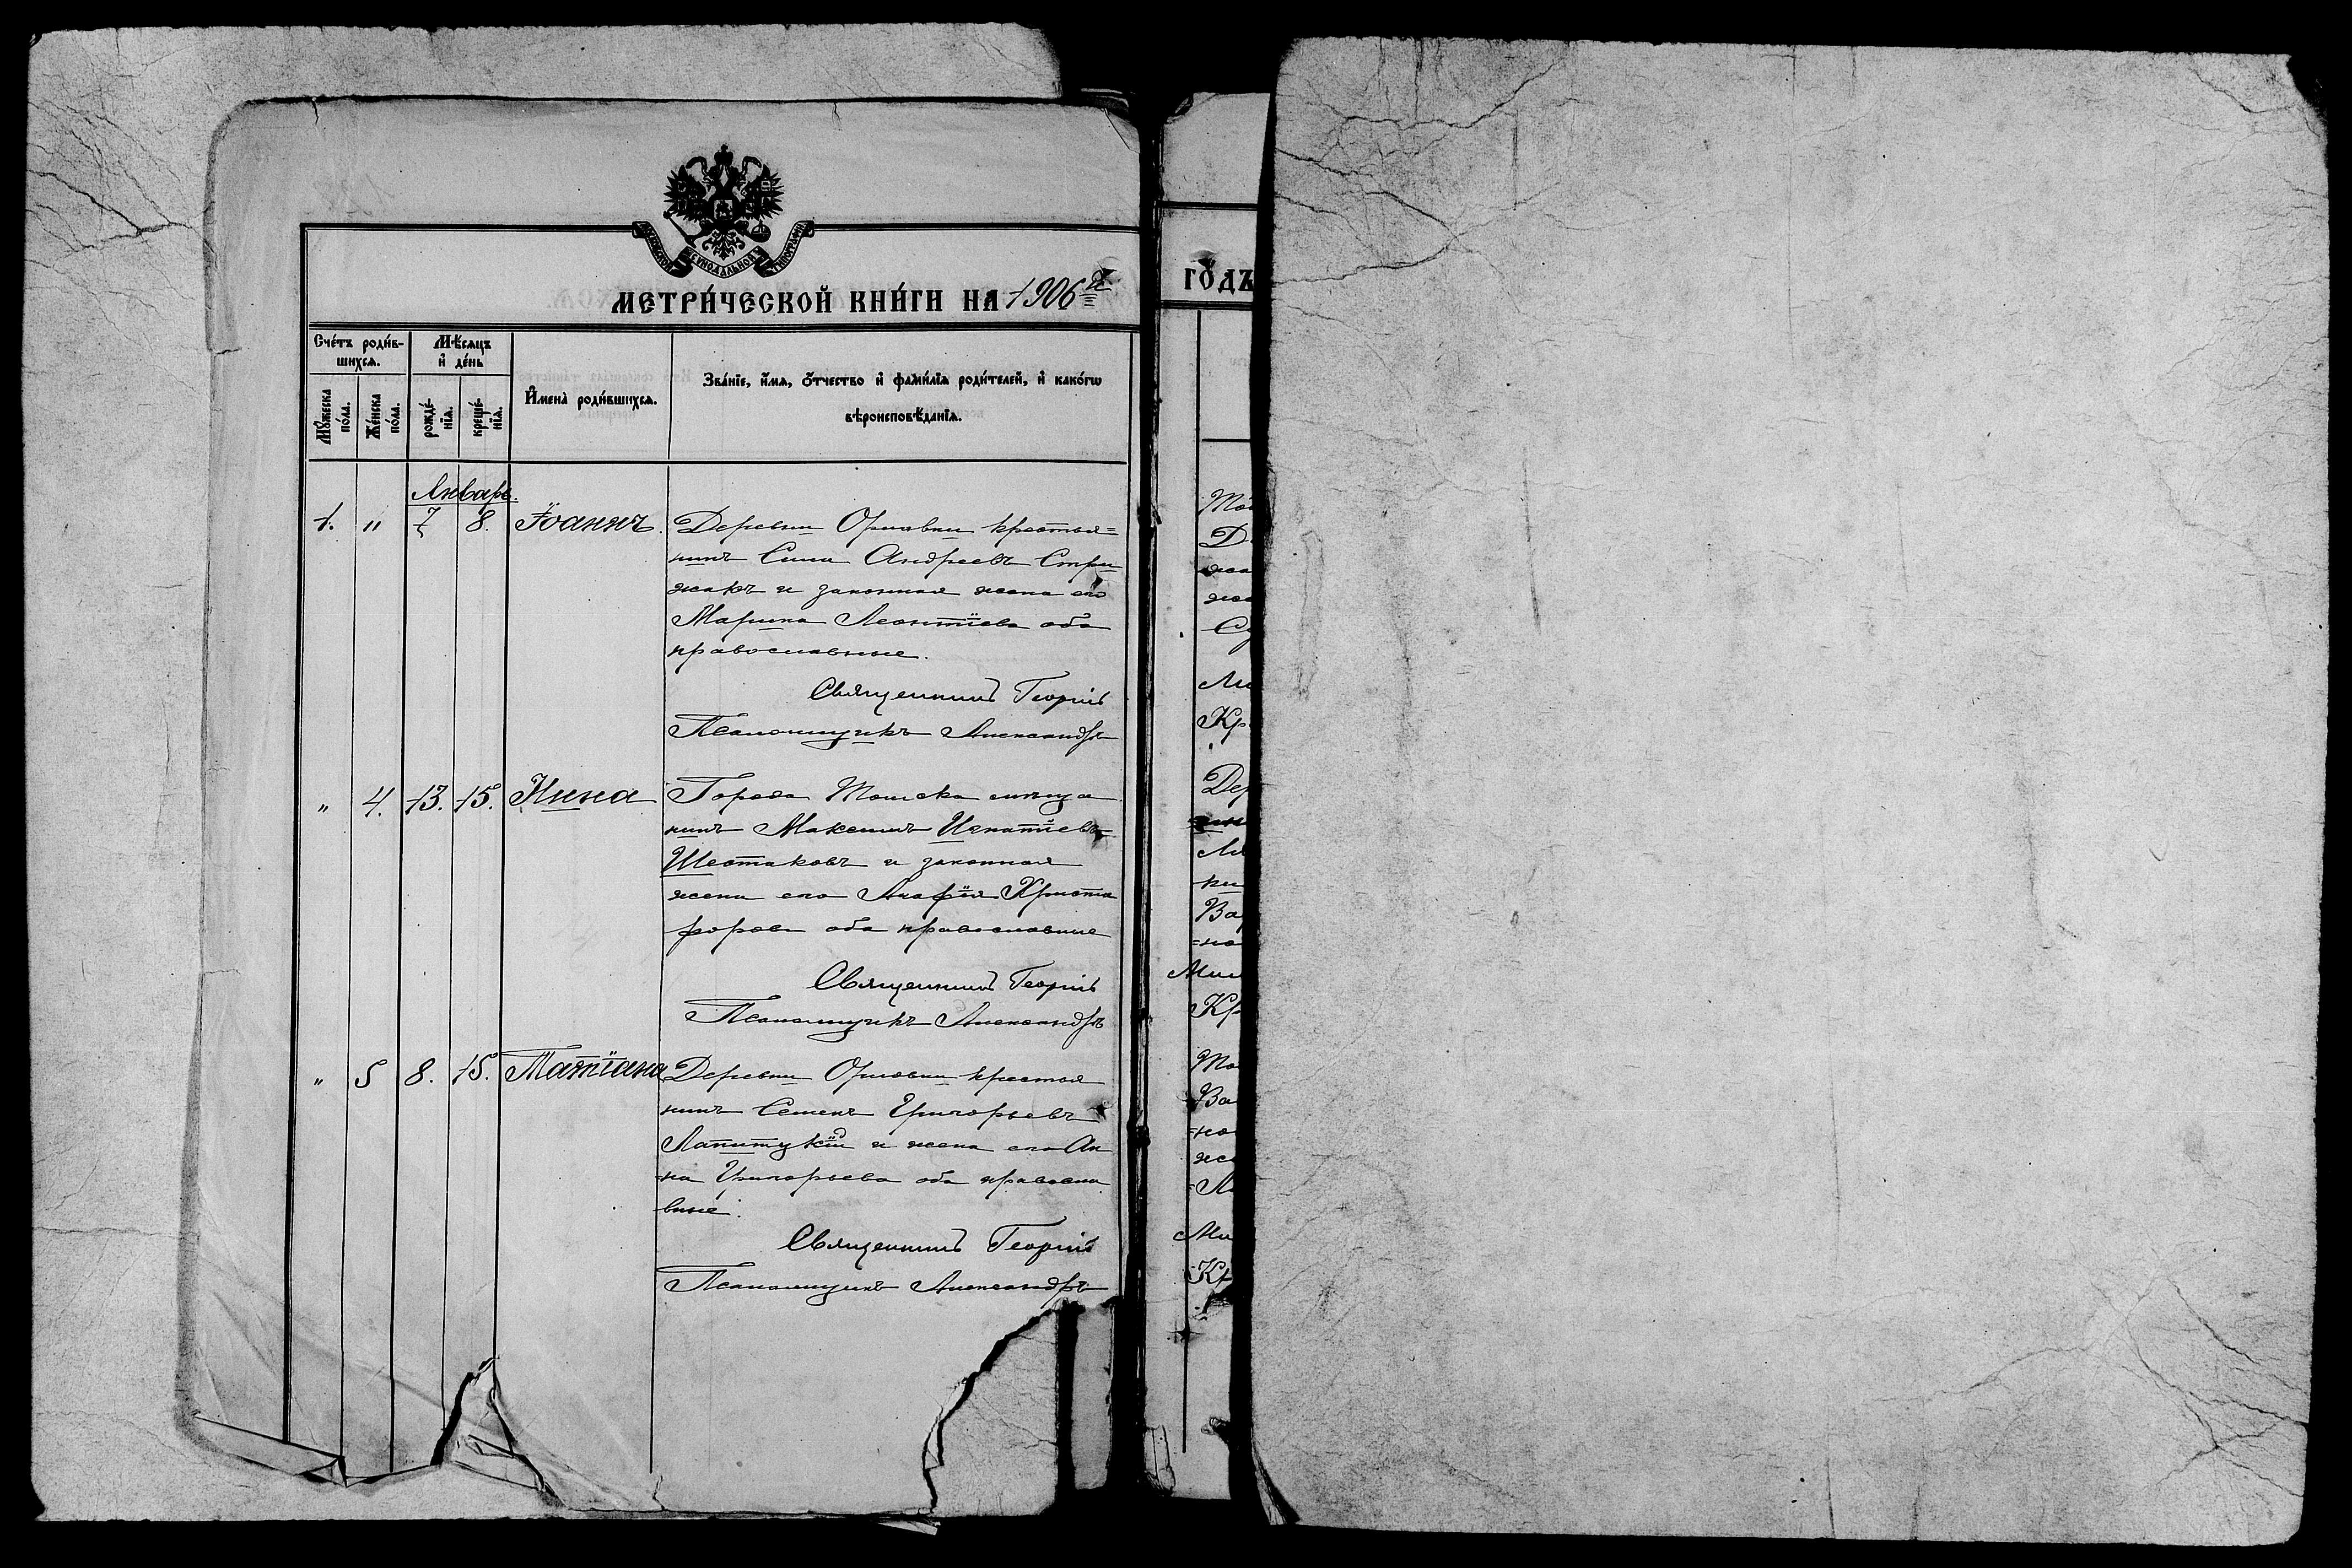 МОСКОВСКОЙ СѴНОДАЛЬНОЙ ТИПОГРАФІИ
МЕТРИ́ЧЕСКОЙ КНИ́ГИ НА 1906й
ГО́ДЪ
Сче́тъ роди́в-
шихсѧ.
Мѣ́сѧцъ
и҆ де́нь
Мꙋ́жеска
по́ла.
Же́нска
по́ла.
рожде́-
нїѧ.
креще́-
нїѧ.
И҆мена̀ роди́вшихсѧ.
Зва́нїе, и҆́мѧ, ѻ҆́тчество и҆ фами́лїѧ роди́телей, и҆ како́гѡ
вѣроисповѣ́данїѧ.
Январь.
1. " 7 8. Іоаннъ. Деревни Орловки крестья=
нинъ Сила Андреевъ Стри
жакъ и законная жена его
Марина Леонтіева оба
православные.
Священникъ Георгій
Псаломщикъ Александръ
" 4. 13. 15. Нина Города Томска мѣща
нинъ Максимъ Игнатіевъ
Шестаковъ и законная
жена его Агафія Христо
форова оба православные
Священникъ Георгій
Псаломщикъ Александръ
" 5 8. 15. Татіана Деревни Орловки крестья
нинъ Семенъ Григорьевъ
и жена его Ан
на Григорьева оба правосла
вные.
Священникъ Георгій
Псаломщикъ Александръ